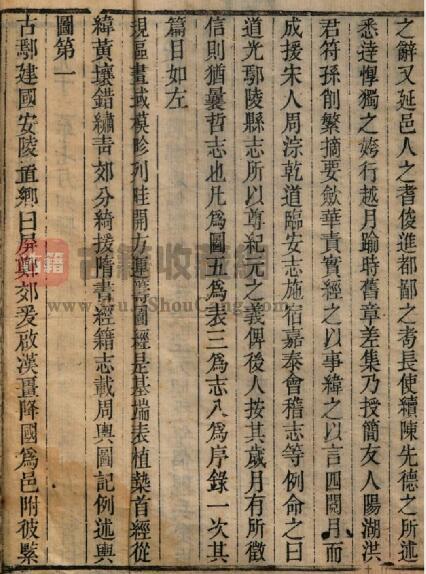 之辭又延邑人之耆俊進都鄙之耉長使續陳先德之所述
悉達惸獨之姱行越月踰時舊章差集乃授簡友人陽湖洪
君符孫削繁摘要斂華責實經之以事緯之以言四閱月而
成援宋人周淙乾道臨安志施宿嘉泰會稽志等例命之曰
道光鄢陵縣志所以尊紀元之義俾後人按其歲月有所徵
信則猶曩哲志也凡為圖五為表三為志八為序錄一次其
篇目如左
規區畫域模畛列畦開方運籌圖經是基端表植槷首經從
緯黃壤錯繡靑郊分綺援隋書經籍志載周輿圖記例述輿
圖第一
古鄢建國安陵啚鄉曰屏鄭郊爰啟漢畺降國為邑附彼繄
古籍收藏網
www.GuJiShouCang.com